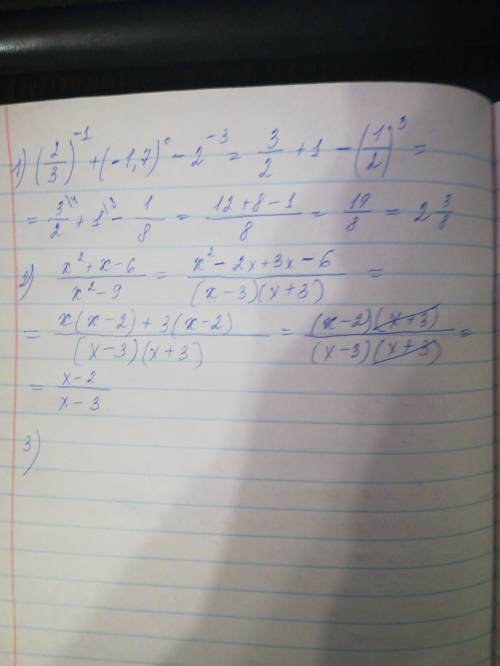 1) (2/3)^-1 + (-1,7)^0 - 2^-3 = 3/2 + 1 - (1/2)^3 =
= 3\4/2 + 1\8 - 1/8 = (12+8-1)/8 = 19/8 = 2 3/8
2) (x^2+x-6)/(x^2-9) = (x^2-2x+3x-6)/((x-3)(x+3)) =
= (x(x-2)+3(x-2))/((x-3)(x+3)) = ((x-2)(x+3))/((x-3)(x+3)) =
= (x-2)/(x-3)
3)